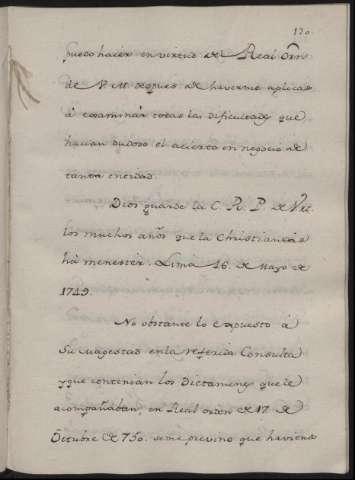 130.
puedo hacer en virtud de Real Orn.
de V. M. despues de haverme aplicado
á examinár todas las dificultades que
hacian dudoso el acierto en negocio de
tanta entidad.
Dios guarde la C. R. P. de V. M.
los muchos años que la Christiandad
há menestér. Lima 16. de Mayo de
1749.
No obstante lo expuesto á
Su Magestad en la referida Consulta
y que contenian los Dictamenes que le
acompañaban en Real orden de 17. de
Octubre de 750. se me previno que haviendo